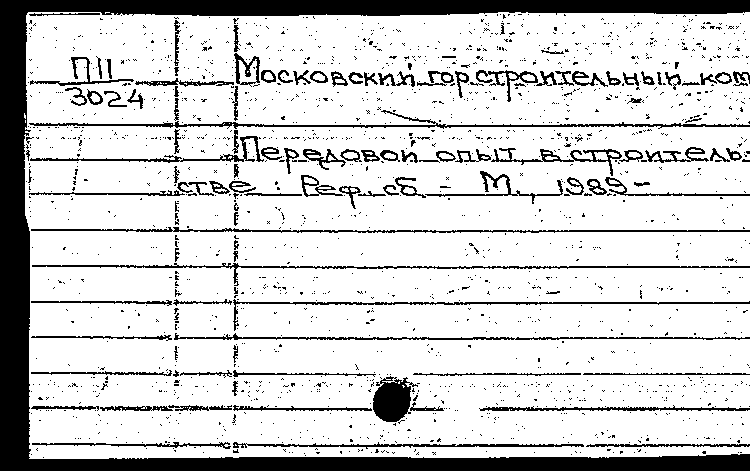 П11 Московский горстроительный ком
3024
Передовой опыт в строитель-
стве : Реф. сб. - М., 1989-